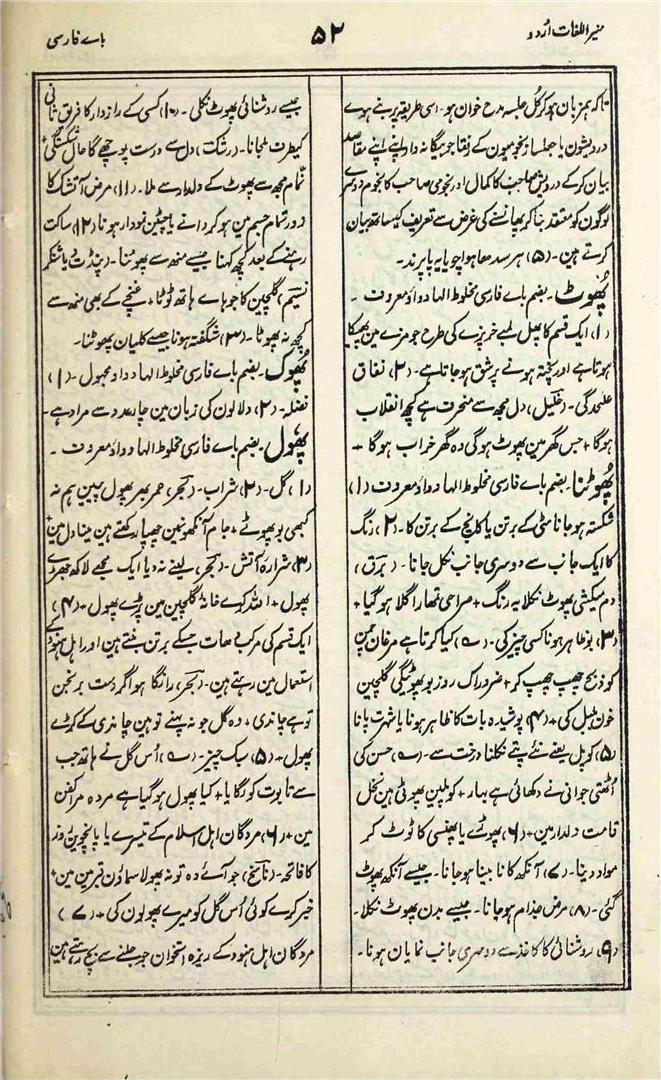 منیر اللغات اُردو
۵۲
باے فارسی
تا کہ ہمزبان ہو کر کُل جلسہ مدح خوان ہو۔ اسی طریقہ پر بنے ہوے
درویشون یا جعلساز نجومیون کے رفقا جو بیگانہ وار اپنے اپنے مقاصد
بیان کر کے درویش صاحب کا کمال اور نجومی صاحب کا نجوم دوسرے
لوگون کو معتقد بنا کر پھانسنے کی غرض سے تعریف کیساتھ بیان
کرتے ہین۔ (۵) ہر سدھا ہوا چوپایہ یا پرند۔
پُھوٹ۔ بضم باے فارسی مخلوط الہا و واؤ معروف۔
(۱) ایک قسم کا پھل لمبے خربزے کی طرح جو مزے مین پھیکا
ہوتا ہے اور پختہ ہونے پر شق ہو جاتا ہے۔ (۲) نفاق
علٰحدگی۔ (خلیل) دل مجھ سے منحرف ہے کچھ انقلاب
ہوگا + جس گھر مین پھوٹ ہوگی وہ گھر خراب ہوگا +
پُھوٹنا۔ بضم باے فارسی مخلوط الہا و واؤ معروف (۱)
شکستہ ہو جانا مٹی کے برتن یا کانچ کے برتن کا۔ (۲) رنگ
کا ایک جانب سے دوسری جانب نکل جانا۔ (برق)
دم میکشی پھوٹ نکلا یہ رنگ + صراحی تمھارا گلا ہو گیا +
(۳) بو ظاہر ہونا کسی چیز کی۔ (؎) کیا کرتا ہے مرغان چمن
کو ذبح چھپ چھپ کر + ضرور اک روز بو پھوٹیگی گلچین
خون بلبل کی + (۴) پوشیدہ بات کا ظاہر ہونا یا شہرت پانا
(۵) کوپل یعنے نئے پتے نکلنا درخت سے۔ (؎) حسن کی
اُٹھتی جوانی نے دکھائی ہے بہار + کوپلین پھوٹی ہین نخل
قامت دلدار مین + (۶) پھوڑے یا پھنسی کا ٹوٹ کر
مواد دینا۔ (۷) آنکھ کا نابینا ہو جانا۔ جیسے آنکھ پھوٹ
گئی۔ (۸) مرض جذام ہو جانا۔ جیسے بدن پھوٹ نکلا۔
(۹) روشنائی کا کاغذ سے دوسری جانب نمایان ہونا۔
جیسے روشنائی پھوٹ نکلی۔ (۱۰) کسی کے رازدار کا فریق ثانی
کیطرف ملجانا۔ (رشک) دل سے درست پوچھے گا حال شکستگی +
تمام مجھ سے پھوٹ کے دلدار سے ملا۔ (۱۱) مرض آتشک کا
دور تمام جسم مین ہو کر دانے یا چٹین نمودار ہونا (۱۲) ساکت
رہنے کے بعد کچھ کہنا جیسے منھ سے پھوٹنا۔ (پنڈت دیا شنکر
نسیم) گلچین کا جو ہاے ہاتھ ٹوٹا + غنچے کے بھی منھ سے
کچھ نہ پھوٹا۔ (۱۳) شگفتہ ہونا جیسے کلیان پھوٹنا۔
پُھوک۔ بضم باے فارسی مخلوط الہا و واؤ مجہول۔ (۱)
فضلہ۔ (۲) دلالون کی زبان مین چار عدد سے مراد ہے۔
پُھول۔ بضم باے فارسی مخلوط الہا و واؤ معروف۔
(۱) گل۔ (۲) شراب۔ (بحر) عمر بھر پھول پیین ہم نہ
کبھی بو پھوٹے + جام آنکھونمین چھپا رکھتے ہین مینا دل مین +
(۳) شرارۂ آتش۔ (بحر) لینے نہ دیا ایک مجھے لاکھ جھڑے
پھول + اللہ کرے خانۂ گلچین مین پڑے پھول + (۴)
ایک قسم کی مرکب دھات جسکے برتن بنتے ہین اور اہل ہنود کے
استعمال مین رہتے ہین۔ (بحر) رانگا ہو اگر دست برنجن
تو ہے چاندی + وہ گل جو نہ پہنے تو ہین چاندی کے کڑے
پھول + (۵) سبک چیز۔ (؎) اُس گل نے ہاتھ جب
سے تابوت کو لگایا + کیا پھول ہو گیا ہے مردہ مرا کفن
مین + (۶) مردگان اہل اسلام کے تیسرے یا پانچوین روز
کا فاتحہ۔ (ناسخ) جو آئے وہ تو نہ پھولا سماؤن قبر مین مین +
خبر کرے کوئی اُس گل کو میرے پھولون کی + (۷)
مردگان اہل ہنود کے ریزہ استخوان جو جلنے سے بچ رہتے ہین